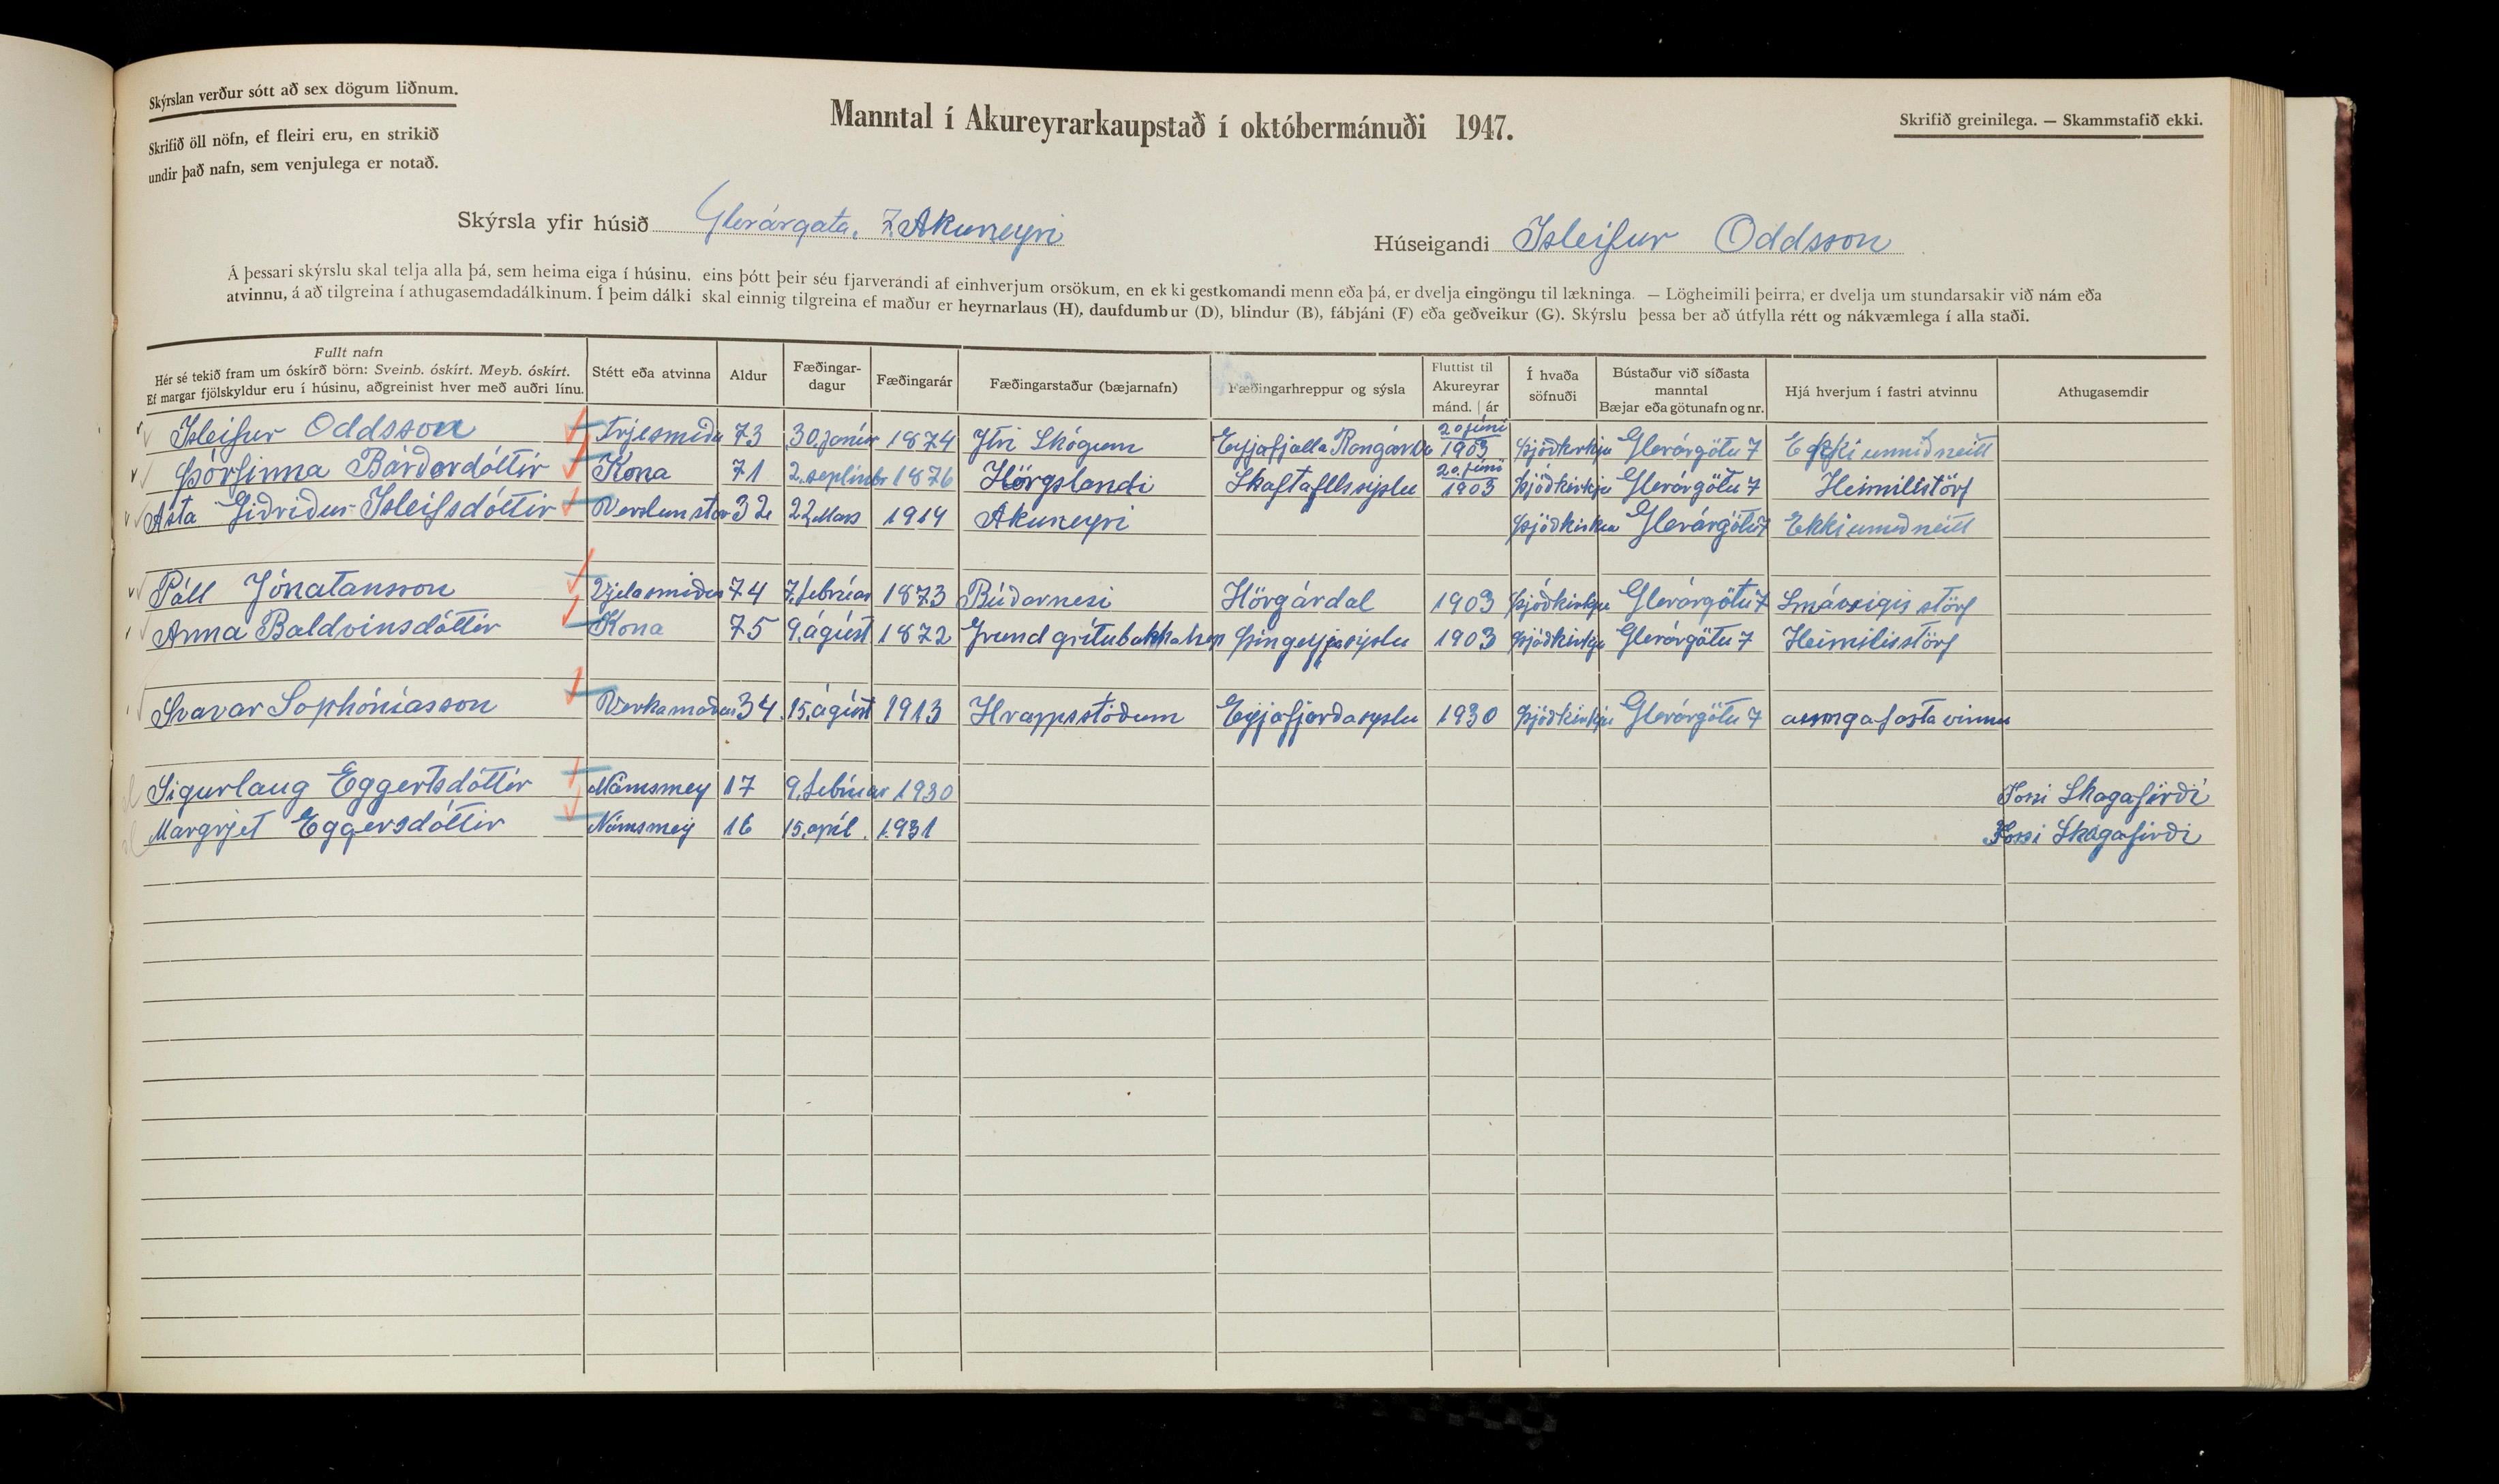 Skýrslan verður sótt að sex dögum liðnum.
Skrifið öll nöfn, ef fleiri eru, en strikið
undir það nafn, sem venjulega er notað.
Manntal í Akureyrarkaupstað í októbermánuði 1947.
Skrifið greinilega. — Skammstafið ekki.
Skýrsla yfir húsið Glerárgata. 7. Akureyri
Húseigandi Isleifur Oddsson
Á þessari skýrslu skal telja alla þá, sem heima eiga í húsinu, eins þótt þeir séu fjarverandi af einhverjum orsökum, en ekki gestkomandi menn eða þá, er dvelja eingöngu til lækninga. — Lögheimili þeirra, er dvelja um stundarsakir við nám eða
atvinnu, á að tilgreina í athugasemdadálkinum. Í þeim dálki skal einnig tilgreina ef maður er heyrnarlaus (H), daufdumbur (D), blindur (B), fábjáni (F) eða geðveikur (G). Skýrslu þessa ber að útfylla rétt og nákvæmlega í alla staði.
Fullt nafn
Hér sé tekið fram um óskírð börn: Sveinb. óskírt. Meyb. óskírt.
Ef margar fjölskyldur eru í húsinu, aðgreinist hver með auðri línu.
Stétt eða atvinna
Aldur
Fæðingar-
dagur
Fæðingarár
Fæðingarstaður (bæjarnafn)
Fæðingarhreppur og sýsla
Fluttist til
Akureyrar
mánd. | ár
Í hvaða
söfnuði
Bústaður við síðasta
manntal
Bæjar eða götunafn og nr.
Hjá hverjum í fastri atvinnu
Athugasemdir
Isleifur Oddsson 73 1874 Ytri Skógum 20 júni 1903 Þjóðkirkju Glerárgötu 7
Þórfinna Bárdardóttir Kona 71 1876 Hörgslandi Skaftafellssýslu 20. júni 1903 Þjóðkirkju Glerárgötu 7 Heimilistörf
Asta Isleifsdóttir 32 22 Mars 1914 Akureyri Glerárgötu 7
Páll Jónatansson 74 7. februar 1873 Búdarnesi Hörgárdal 1903 Þjóðkirkju Glerárgötu 7
Anna Baldvinsdóttir Kona 75 9. ágúst 1872 Þingeyjasýslu 1903 Þjóðkirkju Glerárgötu 7 Heimilisstörf
Svavar Sophóníasson Verkamadur 34. 15. ágúst 1913 Hrappsstödum Eyjafjardasyslu 1930 Þjódkirkju Glerárgötu 7
Sigurlaug Eggertsdóttir Námsmey 17 1930 Fossi Skagafirði
Margrjet Eggersdóttir Námsmey 16 15. apríl. 1931 Fossi Skagafirði